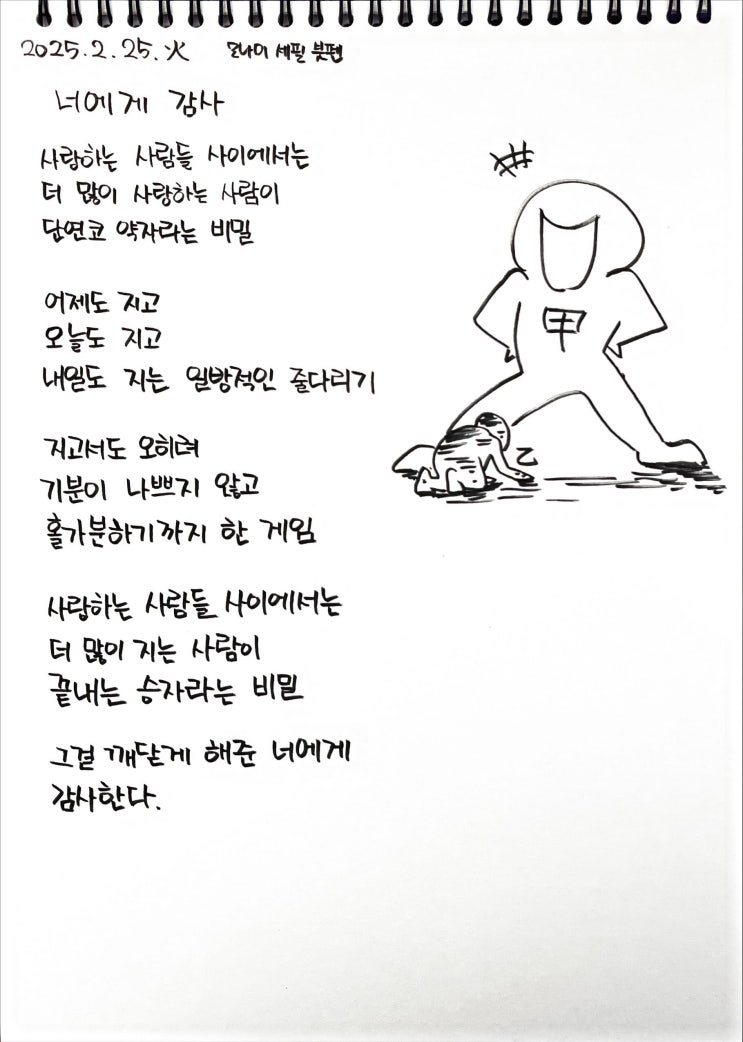 2025.2.25.火 모나미 세필 붓펜
너에게 감사
사랑하는 사람들 사이에서는
더 많이 사랑하는 사람이
단연코 약자라는 비밀
어제도 지고
오늘도 지고
내일도 지는 일방적인 줄다리기
지고서도 오히려
기분이 나쁘지 않고
홀가분하기까지 한 게임
사랑하는 사람들 사이에서는
더 많이 지는 사람이
끝내는 승자라는 비밀
그걸 깨닫게 해준 너에게
감사한다.
甲
乙